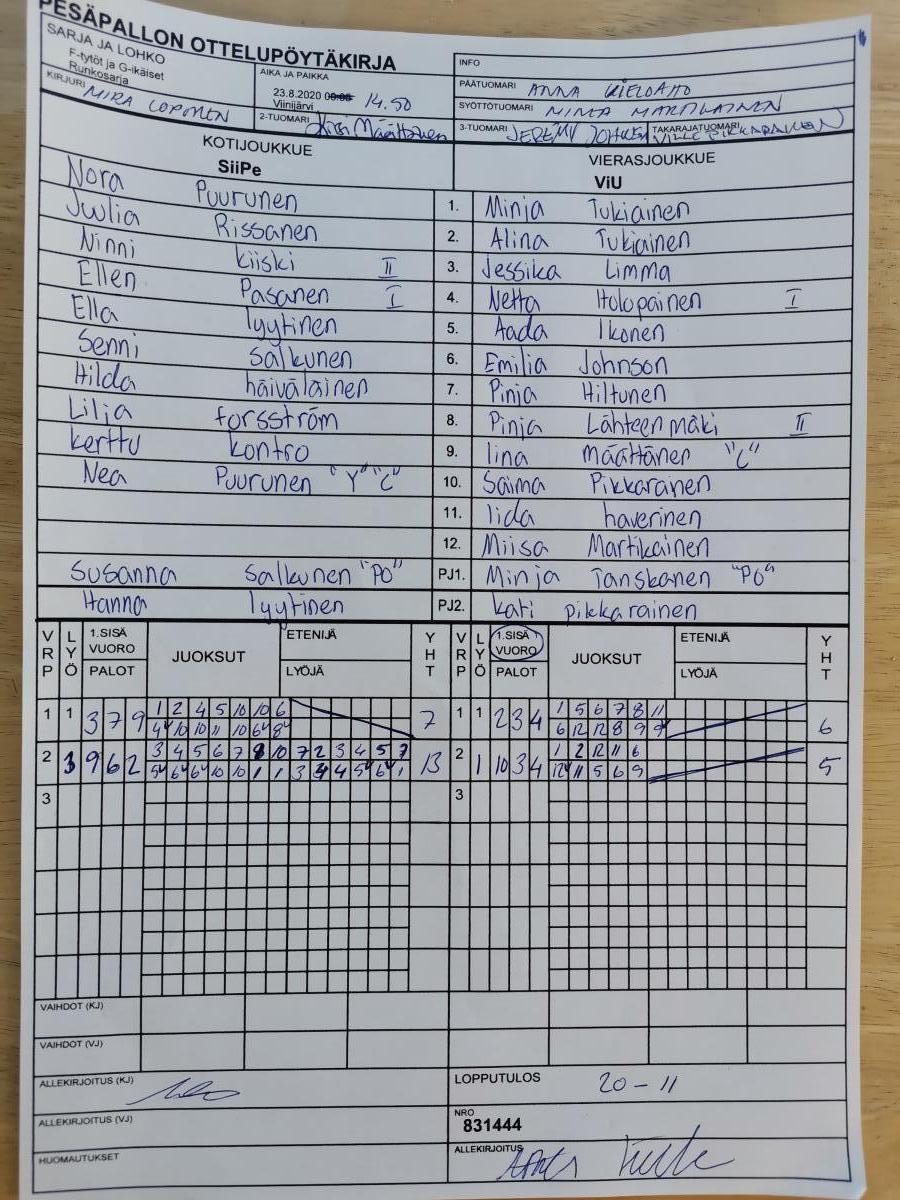 PESÄPALLON OTTELUPÖYTÄKIRJA
SARJA JA LOHKO
F-tytöt ja G-ikäiset
Runkosarja
AIKA JA PAIKKA
23.8.2020 00:05 14.50
Viinijärvi
INFO
PÄÄTUOMARI ANNA KIELOAHO
SYÖTTÖTUOMARI MINTA MARTTLAINEN
KIRJURI MIRA LOPONEN
2-TUOMARI Kirsi Määttänen
3-TUOMARI JEREMY TAKARAJATUOMARI VILLE PIKKARAINEN
KOTIJOUKKUE
SiiPe
VIERASJOUKKUE
ViU
Nora Puurunen 1. Minja Tukiainen
Juulia Rissanen 2. Alina Tukiainen
Ninni kiiski II 3. Jessika Limma
Ellen Pasanen I 4. Netta Holopainen I
Ella lyytinen 5. Aada Ikonen
Senni salkunen 6. Emilia Johnson
Hilda häiväläinen 7. Pinja Hiltunen
Lilja forsström 8. Pinja Lähteenmäki II
kerttu kontro 9. Iina Määttänen "C"
Nea Puurunen "Y" "C" 10. Saima Pikkarainen
11. Iida haverinen
12. Miisa Martikainen
Susanna Salkunen "PO" PJ1. Minja Tanskanen "PO"
Hanna lyytinen PJ2. kati pikkarainen
VRP LYÖ 1.SISÄ VUORO PALOT JUOKSUT ETENIJÄ LYÖJÄ YHT VRP LYÖ 1.SISÄ VUORO PALOT JUOKSUT ETENIJÄ LYÖJÄ YHT
1 1 3 7 9 1 2 4 5 10 10 6 7 1 1 2 3 4 1 5 6 7 8 11 6
4 10 10 11 10 6 8 6 12 12 8 9 9
2 3 9 6 2 3 4 5 6 7 8 10 7 2 3 4 5 7 13 2 1 10 3 4 1 2 12 11 6 5
5 6 6 10 10 1 1 3 4 4 5 6 1 12 11 5 6 9
3 3
VAIHDOT (KJ)
VAIHDOT (VJ)
ALLEKIRJOITUS (KJ)
LOPPUTULOS 20-11
ALLEKIRJOITUS (VJ)
NRO
831444
HUOMAUTUKSET
ALLEKIRJOITUS